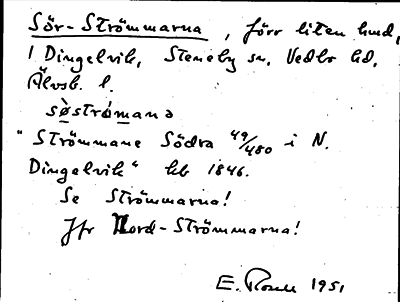 Sör-Strömmarna, förr liten hmd,
i Dingelvik, Steneby sn, Vedbo hd,
Älvsb. l.
sø̀strǿmana
"Strömmane Södra 49/480 i N.
Dingelvik" hb 1846.
Se Strömmarna!
Jfr Nord-Strömmarna!
E. Rosell 1951